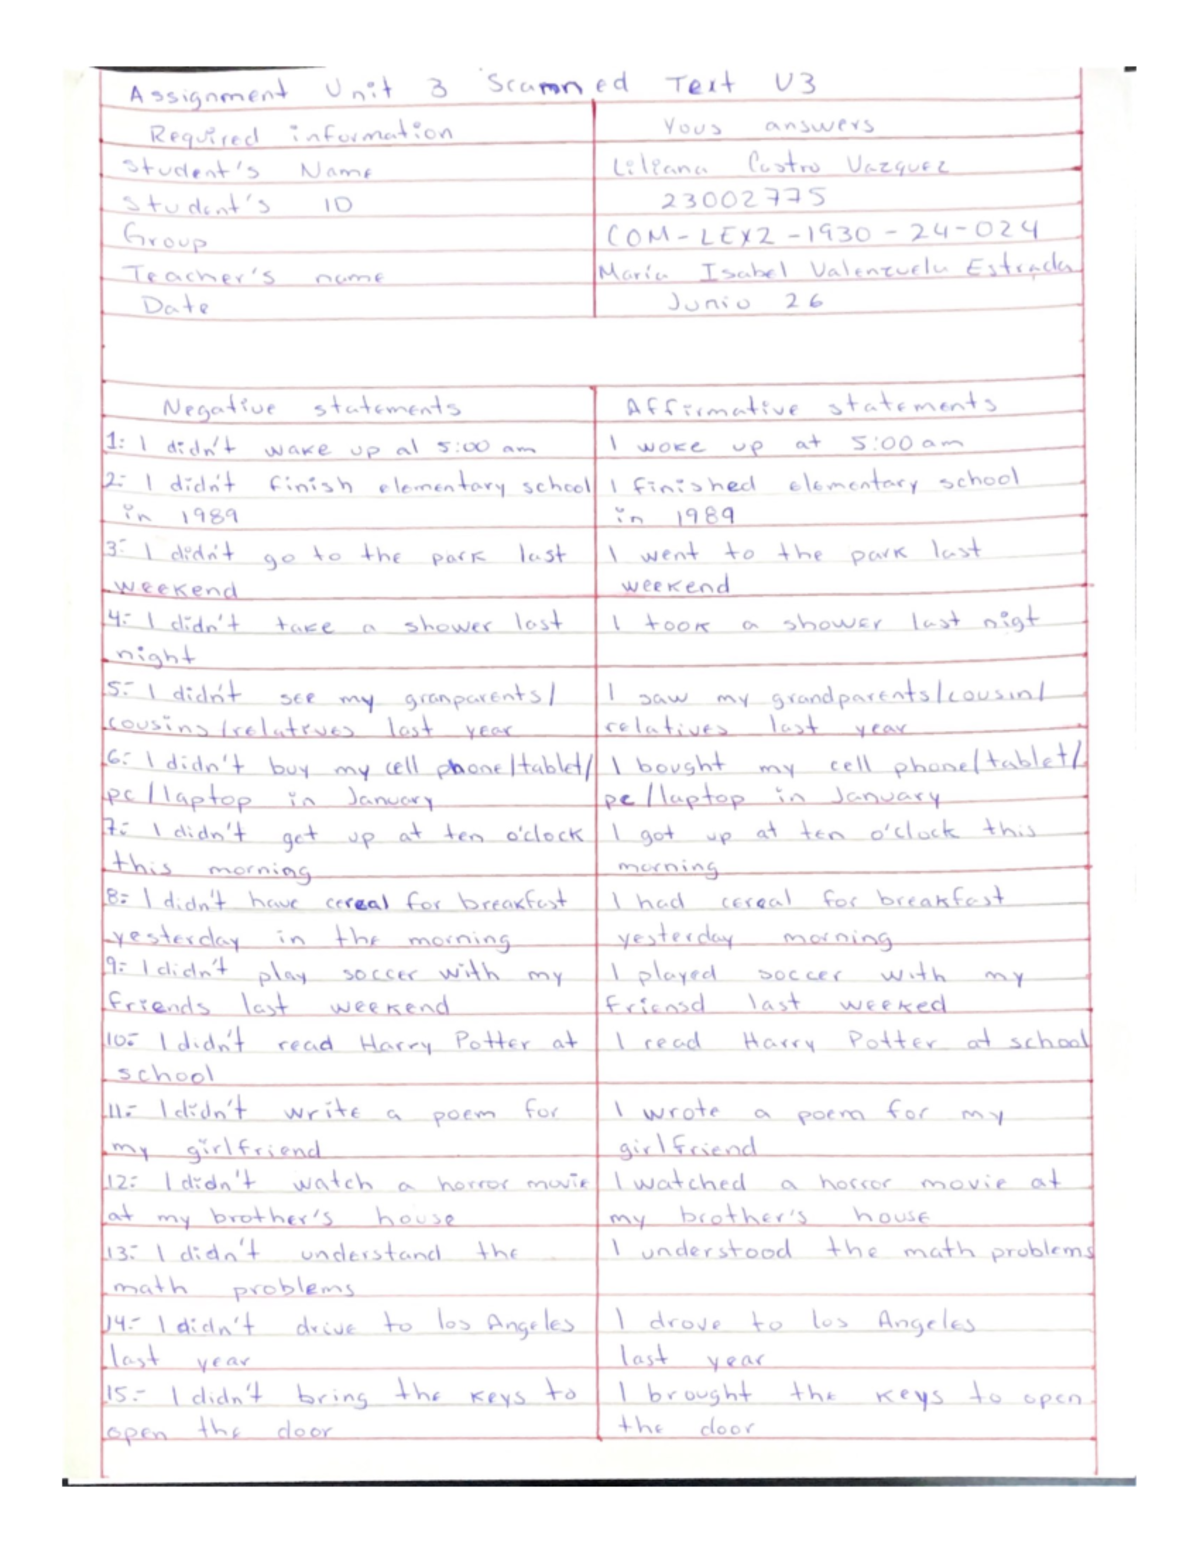 Assignment Unit 3 Scamned Text U3
Required information Yous answers
Student's Name Liliana Castro Vazquez
Student's ID 23002775
Group COM-LEX2-1930-24-024
Teacher's name Maria Isabel Valenzuela Estrada
Date Junio 26
Negative statements Affirmative statements
1: I didn't wake up al 5:00 am I woke up at 5:00 am
2: I didn't finish elementary school I finished elementary school
in 1989 in 1989
3: I didn't go to the park last I went to the park last
weekend weekend
4: I didn't take a shower last I took a shower last nigt
night
5: I didn't see my granparents/ I saw my grandparents/cousin/
cousins/relatives last year relatives last year
6: I didn't buy my cell phone/tablet/ I bought my cell phone/tablet/
pc/laptop in January pc/laptop in January
7: I didn't get up at ten o'clock I got up at ten o'clock this
this morning morning
8: I didn't have cereal for breakfast I had cereal for breakfast
yesterday in the morning yesterday morning
9: I didn't play soccer with my I played soccer with my
friends last weekend friensd last weeked
10: I didn't read Harry Potter at I read Harry Potter at school
school
11: I didn't write a poem for I wrote a poem for my
my girlfriend girlfriend
12: I didn't watch a horror movie I watched a horror movie at
at my brother's house my brother's house
13: I didn't understand the I understood the math problems
math problems
14.- I didn't drive to los Angeles I drove to los Angeles
last year last year
15.- I didn't bring the keys to I brought the keys to open
open the door the door